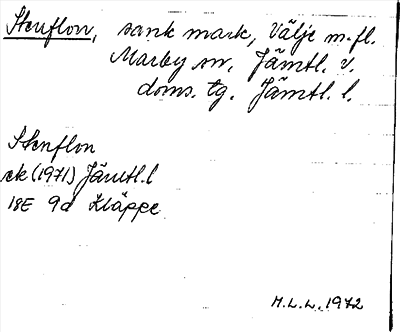 Stenflon, sank mark, Välje m.fl.
Marby sn, Jämtl. v.
doms. tg. Jämtl. l.
Stenflon
ek (1971) Jämtl. l
18E 9d Kläppe
M.L.L. 1972